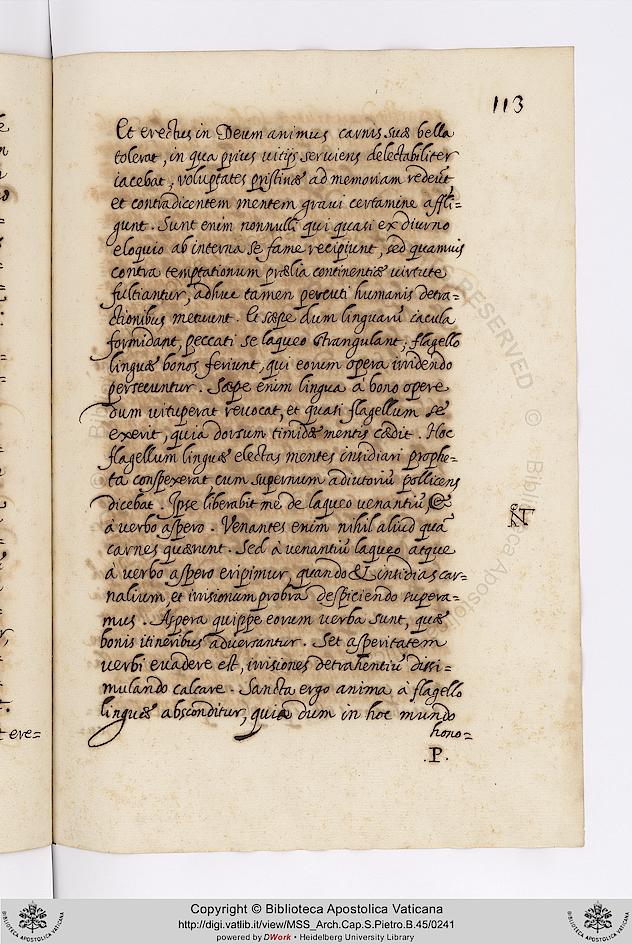 113
Et erectus in Deum animus carnis suæ bella
tolerat, in qua prius vitijs serviens delectabiliter
iacebat, voluptates pristinæ ad memoriam redeūt
et contradicentem mentem gravi certamine affli=
gunt. Sunt enim nonnulli qui quasi ex diurno
eloquio ab interna se fame recipiunt, sed quamvis
contra temptationum prælia continentiæ virtute
fultiantur, adhuc tamen percuti humanis detra=
ctionibus metuunt. Et sæpe dum linguarū iacula
formidant, peccati se laqueo strangulant; flagello
linguæ bonos feriunt, qui eorum opera irridendo
persecuntur. Sæpe enim lingua a bono opere
dum vituperat revocat, et quasi flagellum se
exerit, quia dorsum timidæ mentis cædit. Hoc
flagellum linguæ electas mentes insidiari prophe=
ta conspexerat, cum supernum adiutoriū pollicens
dicebat. Ipse liberabit me de laqueo venantiū, &
à verbo aspero. Venantes enim nihil aliud quā
carnes quærunt. Sed à venantiū laqueo atque
à verbo aspero eripimur, quando & insidias car=
nalium, et irrisionum probra despiciendo supera=
mus. Aspera quippe eorum verba sunt, quæ
bonis itineribus adversantur. Set asperitatem
verbi evadere est, irrisiones detrahentiū dissi=
mulando calcare. Sancta ergo anima à flagello
linguæ absconditur, quia dum in hoc mundo
hono=
.P.
t ere=
© Biblioteca Apostolica
RESERVED
Copyright © Biblioteca Apostolica Vaticana
http://digi.vatlib.it/view/MSS_Arch.Cap.S.Pietro.B.45/0241
powered by DWork • Heidelberg University Library